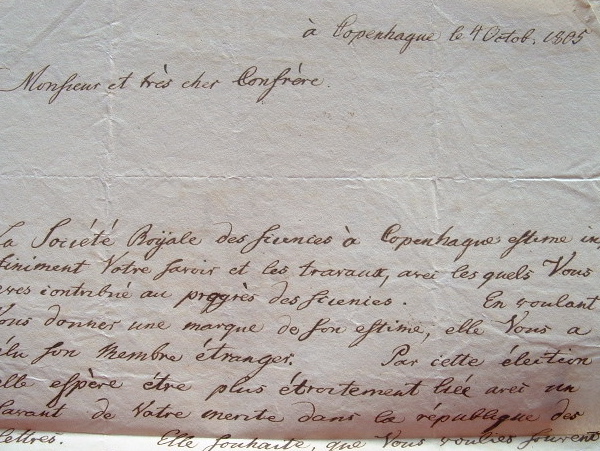 à Copenhague le 4 Octob. 1805
Monsieur et très cher Confrère.
La Société Royale des sciences à Copenhague estime in
finiment Votre savoir et les travaux, avec les quels Vous
aves contribué au progrès des sciences. En voulant
Vous donner une marque de son estime, elle Vous a
élu son membre étranger. Par cette élection
elle espère être plus étroitement liée avec un
savant de Votre merite dans la république des
lettres. Elle souhaite, que Vous voulies souvent